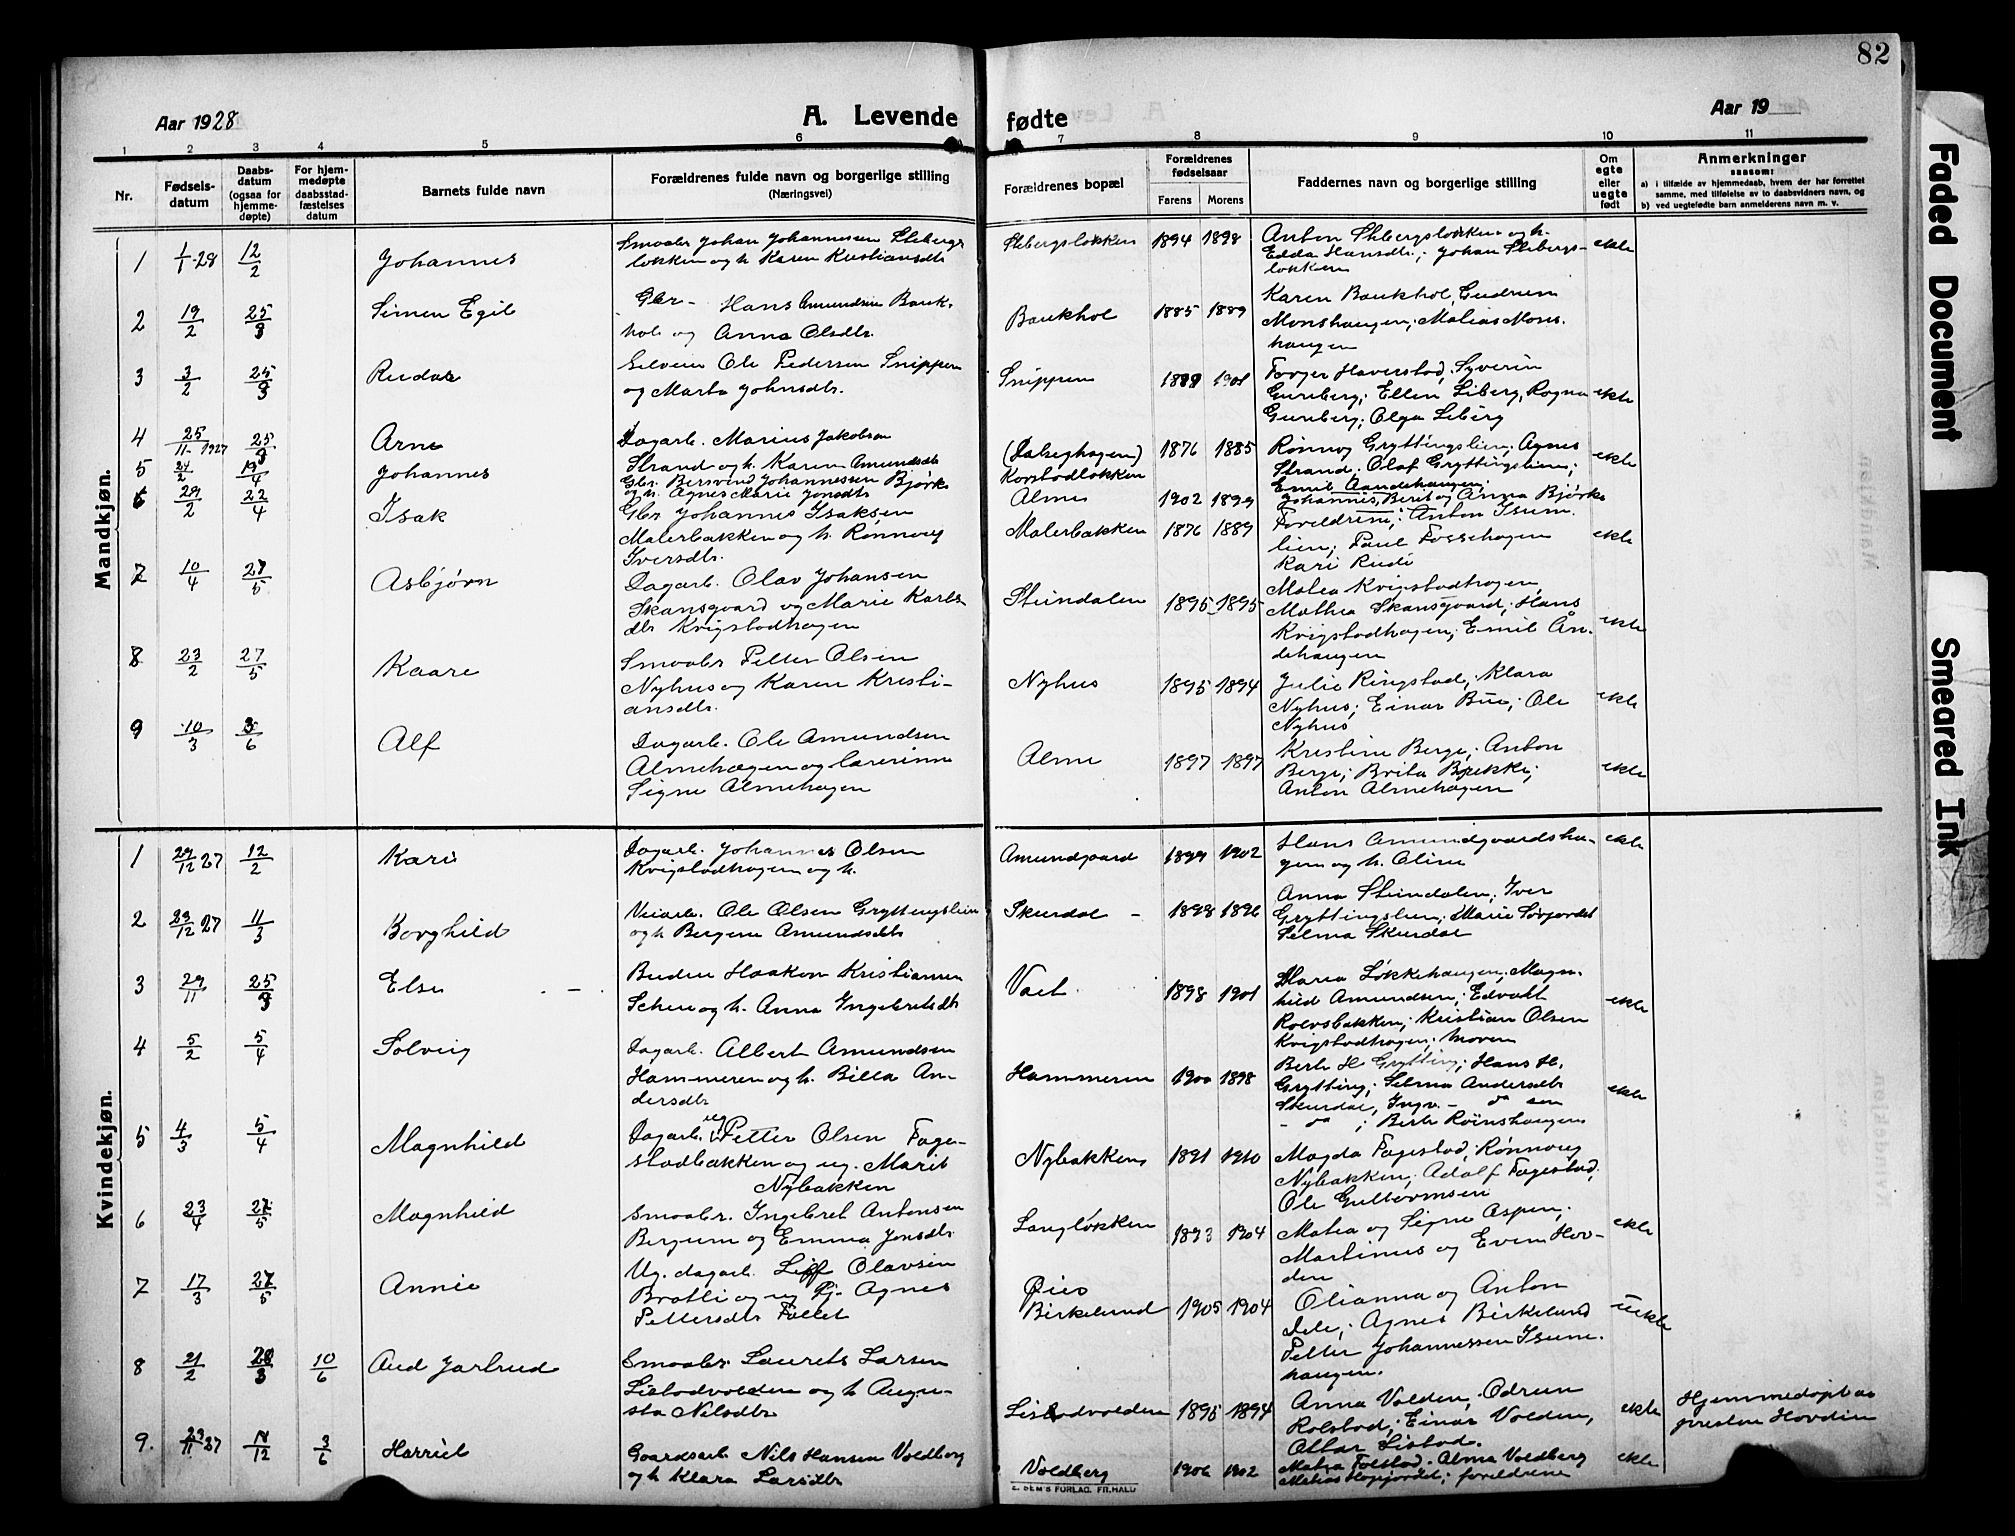 82
Aar 1928
A. Levende
fødte
Aar 19
1 2 3 4 5 6 7 8 9 10 11
Nr.
Fødsels-
datum
Daabs-
datum
(ogsaa for
hjemme-
døpte)
For hjem-
medøpte
daabsstad-
fæstelses
datum
Barnets fulde navn
Forældrenes fulde navn og borgerlige stilling
(Næringsvei)
Forældrenes bopæl
Forældrenes
fødselsaar
Farens Morens
Faddernes navn og borgerlige stilling
Om
egte
eller
uegte
født
Anmerkninger
saasom:
a) i tilfælde av hjemmedaab, hvem der har forrettet
samme, med tilføielse av to daabsvidners navn, og
b) ved uegtefødte barn anmelderens navn m. v.
Mandkjøn.
1 1/1-28 12/2 Johannes
Smaabr Johan Johannessen
og h. Karen Kristiansdtr
1894 1898
Anton og h.
Edda Hansdtr.; Johan
ekte
2 19/2 25/3 Simen Egil
Gbr - Hans Amundsen Bauk-
hol og Anna Olsdtr.
Baukhol 1885 1889
Karen Baukhol, Gudrun
Monshaugen; Matias Mons-
haugen
3 3/2 25/3
Ole Pedersen Snippen
og Marta Johnsdtr.
Snippen 1901
Haverstad; Syverin
Gunberg; Ellen Liberg, Rogna
Gunberg; Olga Liberg
ekte
4 25/11 1927 25/3 Arne
Dagarb. Marius Jakobsen
Strand og h. Karen Amundsdtr
(Dalseghagen)
Korstadløkken
1876 1885
Rønnog Gryttingslien; Agnes
Strand; Olaf Gryttingslien;
Emil Aandehaugen;
ekte
5 24/2 Johannes
Gbr. Bersvend Johannessen Bjørke
og h. Agnes Marie Jonsdtr
Alme 1902 1899
Johannes, Berit og Anna Bjørke
6 29/2 22/4 Isak
Gbr Johannes Isaksen
Malerbakken og h. Rønnoug
Iversdtr.
Malerbakken 1876 1889
Foreldrene; Anton Isum-
lien; Paul Fossehagen
Kari Rudi
ekte
7 10/4 27/5 Asbjørn
Dagarb. Olav Johansen
Skansgaard og Marie Karls-
dtr Kvigstadhagen
Steindalen 1895 1895
Matea Kvigstadhagen,
Mathea Skansgaard; Hans
Kvigstadhagen; Emil Ån-
dehaugen
ekte
8 23/2 27/5 Kaare
Smaabr Petter Olsen
Nyhus og Karen Kristi-
ansdtr.
Nyhus 1895 1894
Julie Ringstad; Klara
Nyhus; Einar Bue; Ole
Nyhus
ekte
9 10/3 3/6 Alf
Dagarb. Ole Amundsen
Almehagen og lærerinne
Signe Almehagen
Alme 1897 1897
Kristine Berge; Anton
Berge; Brita Brekke;
Anton Almehagen
ekte
Kvindekjøn.
1 29/12 27 12/2 Kari
Dagarb. Johannes Olsen
Kvigstadhagen og h.
Amundgaard 1899 1902
Hans Amundgaardsha-
gen og h. Oline
ekte
2 23/12 27 11/3 Borghild
Veiarb. Ole Olsen Gryttingslien
og h Bergene Amundsdtr
Skurdal - 1898 1896
Anna Steindalen; Iver
Gryttingslien; Marie Sørjordet
Selma Skurdal
3 29/11 25/3 Else
Haakon Kristiansen
Scheie og h. Anna Ingebretsdtr
1898 1901
Maria Løkkehaugen; Magn-
hild Amundsen; Edvart
Roevsbakken; Kristian Olsen
Kvigstadhagen; moren
ekte
4 5/2 5/4 Solveig
Dagarb. Albert Amundsen
Hammeren og h. Billa An-
dersdtr
Hammeren 1900 1898
Berte H Grytting; Hans H.
Grytting; Selma Andersdtr
Skurdal, Ingv. - da sen
- da ; Berte Roinshaugen
ekte
5 4/3 5/4 Magnhild
Dagarb. ug Petter Olsen Fage-
stadbakken og ug. Marit
Nybakken
Nybakken 1891 1910
Magda Fagestad; Rønnoug
Nybakken; Adolf Fagestad;
Ole Guttormsen
6 23/4 27/5 Magnhild
Smaabr. Ingebret Antonsen
Bergum og Emma Jonsdtr
Langløkken 1893 1904
Matea og Signe Aspen;
Martinus og Even Hov-
den
ekte
7 17/3 27/5 Annie
Ug. dagarb. Leif Olavsen
Bratli og ug Pj. Agnes
Pettersdtr Follet
Birkelund 1905 1904
Olianna og Anton
Dele; Agnes Birkelund
Petter Johannessen Isum-
haugen.
uekte
8 21/2 28/3 10/6 Aud Jartrud
Smaabr. Laurits Larsen
Listadvolden og h Augu-
sta Nilsdtr
Listadvolden 1895 1894
Anna Volden; Odrun
Rolstad; Einar Volden,
Listad.
ekte
Hjemmedøpt av
presten Hovdin
9. 29/11 27 3/6 Harriet
Gaardsarb. Nils Hansen Voldberg
og h Klara Larsdtr
Voldberg 1906 1902
Matea Folstad. Alma Voldberg
foreldrene
ekte
E. SEM'S FORLAG, FR.HALD
Faded Document
Smeared Ink